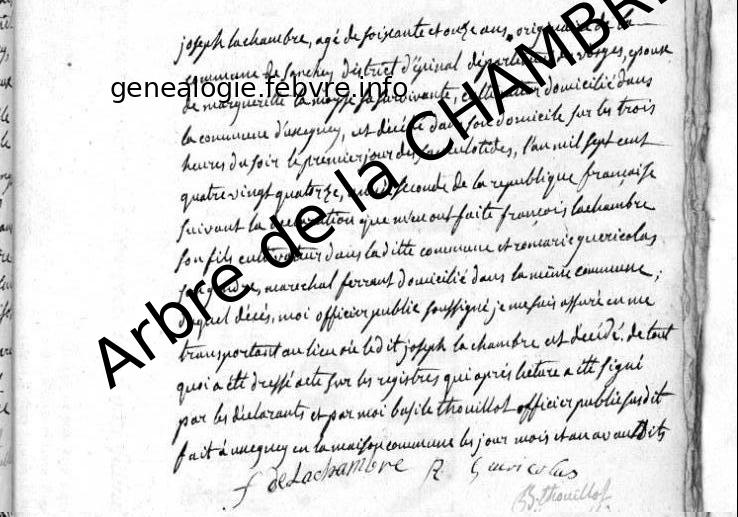 joseph lachambre, agé de soixante et onze ans, originaire de la
commune de sanchey district d'épinal département des vosges, epoux
de marguerite la survivante, cultivateur domicilié dans
la commune d'uxegney, est décédé dans son domicile sur les trois
heures du soir le premier jour des sanculotides, l'an mil sept cent
quatre vingt quatorze, seconde de la republique française
suivant la déclaration que m'en ont faite françois lachambre
son fils cultivateur dans laditte commune et romaric guericolas
son gendre, marechal ferrant domicilié dans la même commune ;
duquel décès, moi officier public soussigné je me suis assuré en me
transportant au lieu où ledit joseph la chambre est décédé. de tout
quoi a été dressé acte sur les registres qui après lecture a été signé
par les déclarants et par moi basile thouillot officier public susdit
fait à uxegney en la maison commune les jour mois et an avant dits
f delachambre R guericolas
B. thouillot
genealogie.febvre.info
Arbre de la CHAMBRE